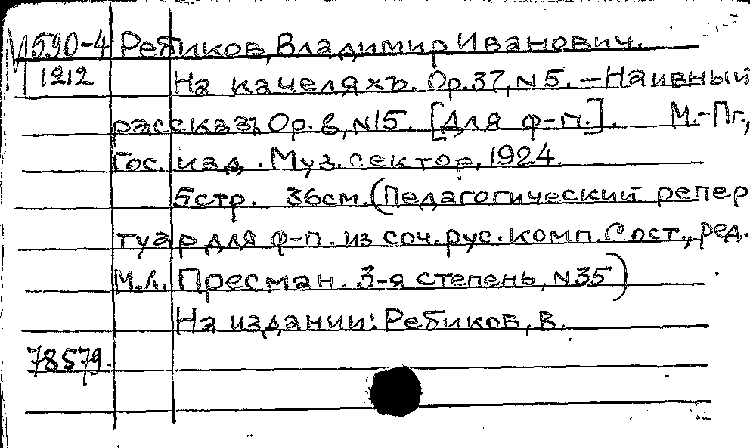 М590-4 Ребиков, Владимир Иванович.
1212 На качеляхъ. Ор.37, N5. – Наивный
рассказ, Ор.8, N15. [Для ф-п.]. М.-Пг.,
Гос. изд. Муз. сектор, 1924.
5стр. 36см. (Педагогический репер
туар для ф-п. из соч. рус. комп. Сост., ред.
М.Л. Пресман. 3-я степень, N35)
На издании: Ребиков, В.
78579.